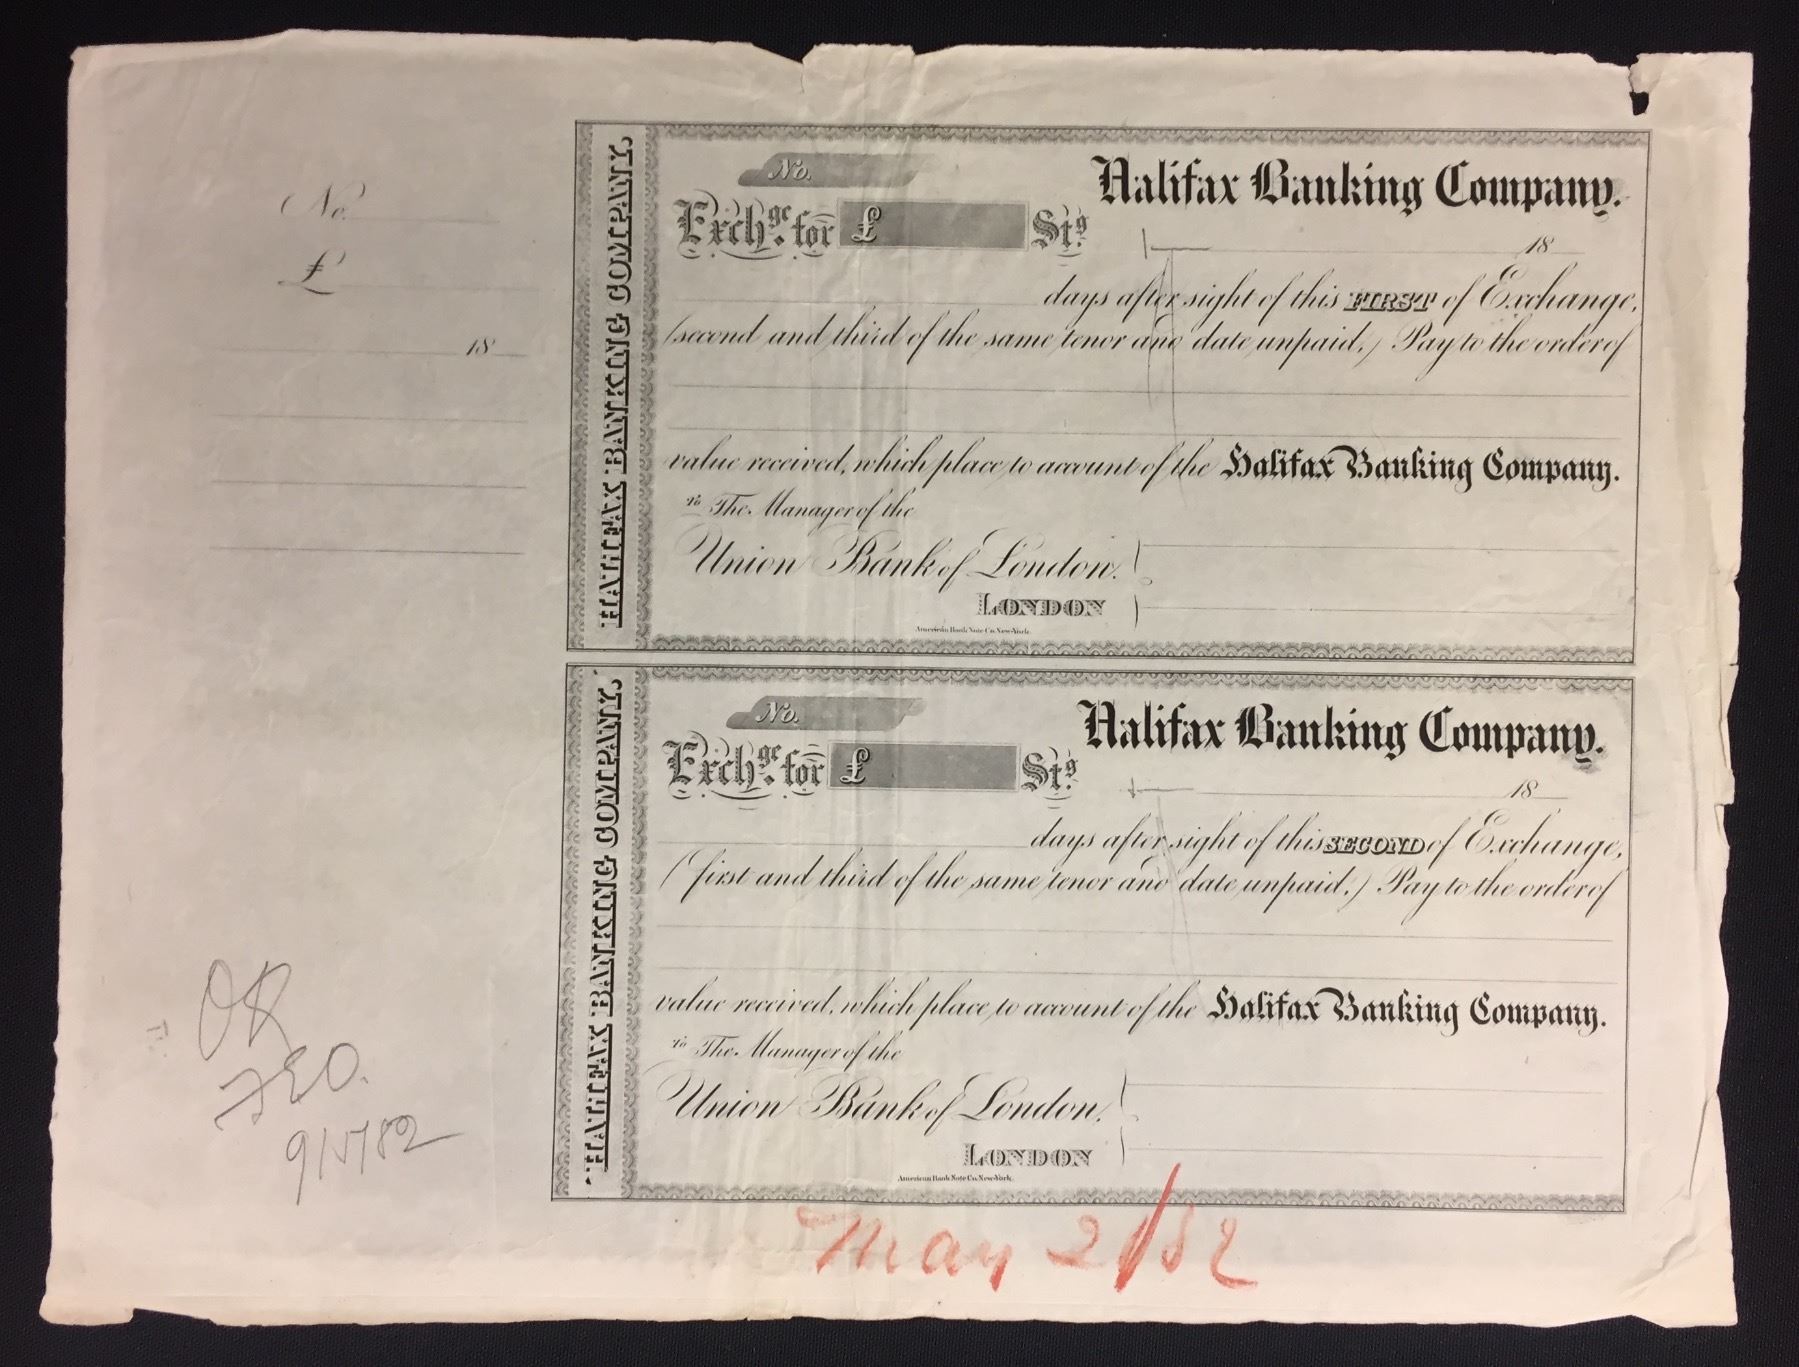 No.
£
18
HALIFAX BANKING COMPANY.
No.
Halifax Banking Company.
Exchge. for £ Stg.
18
days after sight of this FIRST of Exchange,
(second and third of the same tenor and date unpaid,) Pay to the order of
value received, which place to account of the Halifax Banking Company.
To The Manager of the
Union Bank of London.
LONDON
American Bank Note Co. New York.
HALIFAX BANKING COMPANY.
No.
Halifax Banking Company.
Exchge. for £ Stg.
18
days after sight of this SECOND of Exchange,
(first and third of the same tenor and date unpaid,) Pay to the order of
value received, which place to account of the Halifax Banking Company.
To The Manager of the
Union Bank of London.
LONDON
American Bank Note Co. New York.
OK
9/5/82
May 2/82